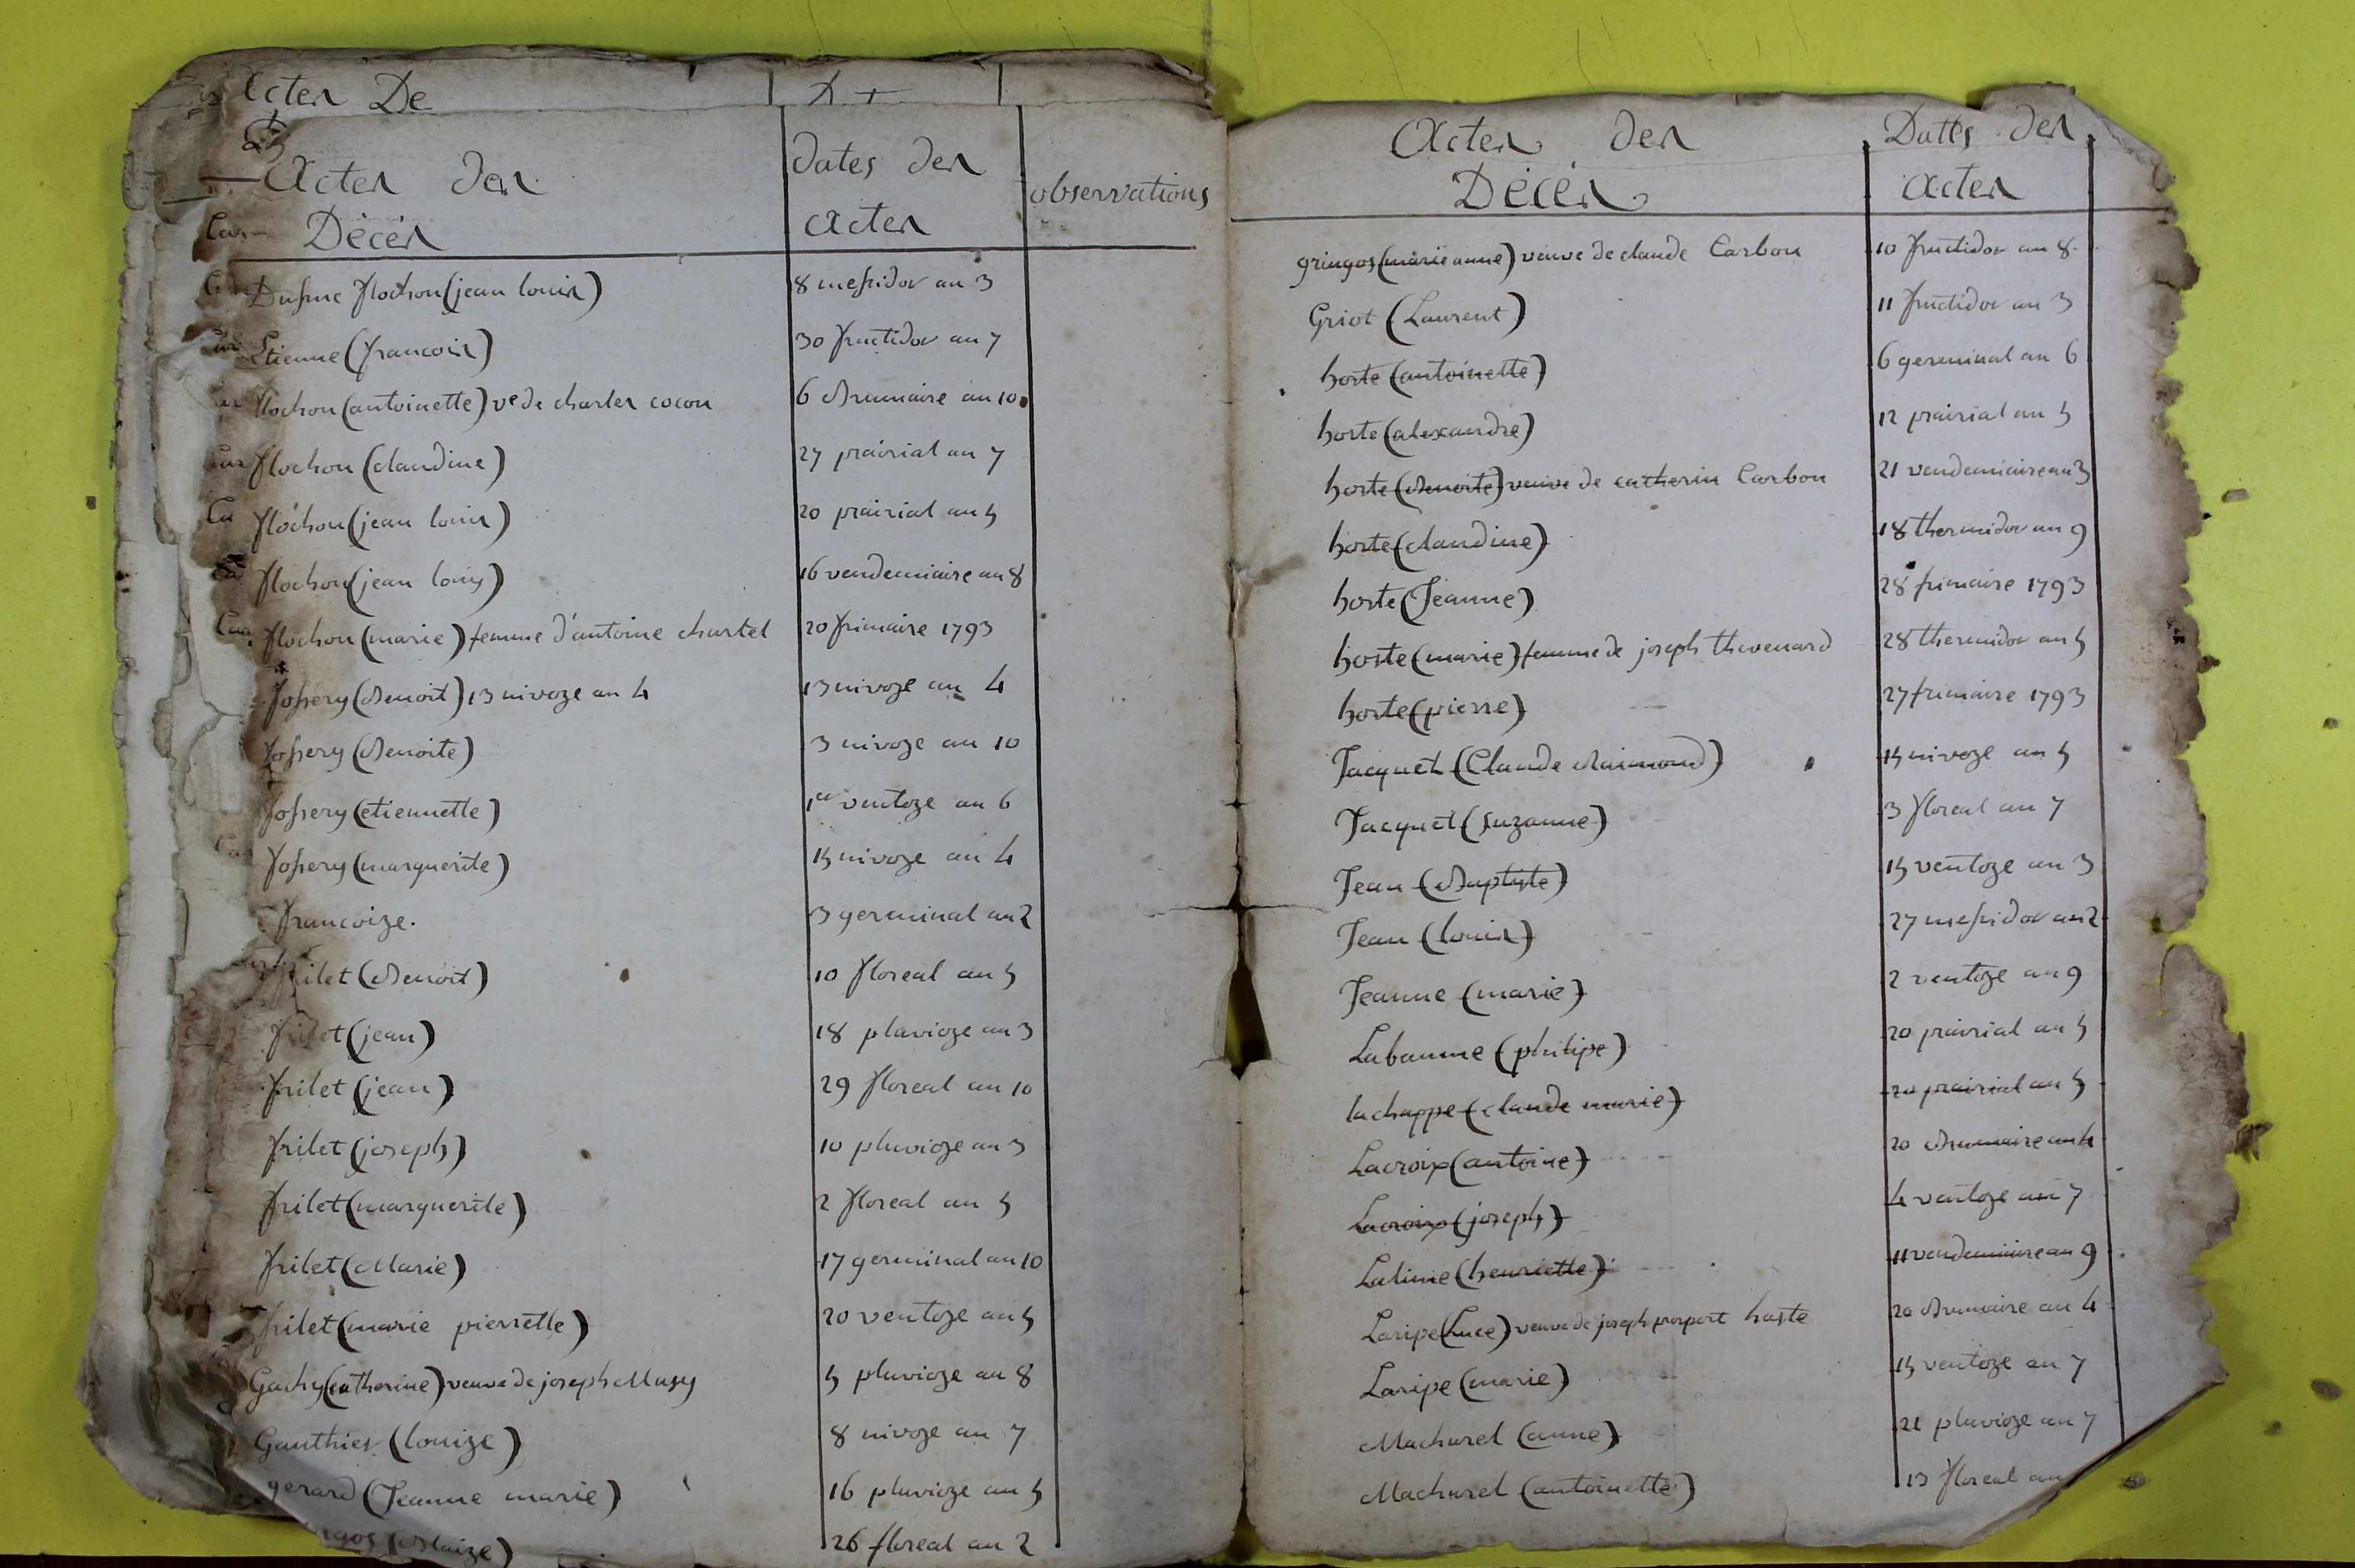 Actes De
Actes des
Décès
dates des
actes
observations
Dusme flochon (jean louis) 8 messidor an 3
Etienne (francois) 30 fructidor an 7
flochon (antoinette) ve de charles cocon 6 Brumaire an 10
flochon (claudine) 27 prairial an 7
flochon (jean louis) 20 prairial an 5
flochon (jean louis) 16 vendemiaire an 8
flochon (marie) femme d'antoine chartel 20 frimaire 1793
fossery (Benoit) 13 nivoze an 4 13 nivoze an 4
fossery (Benoite) 3 nivoze an 10
fossery (etiennette) 1er ventoze an 6
fossery (marguerite) 15 nivoze an 4
francoize. 3 germinal an 2
frilet (Benoit) 10 floreal an 5
frilet (jean) 18 pluvioze an 3
frilet (jean) 29 floreal an 10
frilet (joseph) 10 pluvioze an 3
frilet (marguerite) 2 floreal an 5
frilet (Marie) 17 germinal an 10
frilet (marie pierrette) 20 ventoze an 5
Gachy (catherine) veuve de joseph Musy 5 pluvioze an 8
Gauthier (louize) 8 nivoze an 7
gerard (Jeanne marie) 16 pluvioze an 5
(Blaize) 26 floreal an 2
Actes des
Décès
Dattes des
actes
gringos (marie anne) veuve de claude Carbon 10 fructidor an 8
Griot (Laurent) 11 fructidor an 3
horte (antoinette) 6 germinal an 6
horte (alexandre) 12 prairial an 5
horte (Benoite) veuve de catherin Carbon 21 vendemiaire an 3
horte (claudine) 18 thermidor an 9
horte (Jeanne) 28 frimaire 1793
horte (marie) femme de joseph thevenard 28 thermidor an 5
horte (pierre) 27 frimaire 1793
Jacquet (Claude Raimond) 15 nivoze an 5
Jacquet (suzanne) 3 floreal an 7
Jean (Baptiste) 15 ventoze an 3
Jean (louis) 27 messidor an 2
Jeanne (marie) 2 ventoze an 9
Labaume (philipe) 20 prairial an 5
lachappe (claude marie) 20 prairial an 5
Lacroix (antoine) 20 Brumaire an 4
Lacroix (joseph) 4 ventoze an 7
Lalime (henriette) 11 vendemiaire an 9
Laripe (Luce) veuve de joseph prosport haste 20 Brumaire an 4
Laripe (marie) 15 ventoze an 7
Machurel (anne) 21 pluvioze an 7
Machurel (antoinette) 13 floreal an